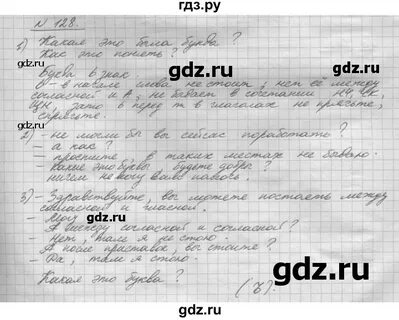 гдз.ру
№ 128.
1) Какая это была буква?
Как это понять?
Буква ь знак.
В начале слова не стоит; нет её между
согласной и А, не бывает в сочетании НЧ, ЧК,
ЩН, зато в перед т в глаголах не прячьтесь,
спрячьте.
2) – не могли бы вы сейчас поработать?
– а как?
– простите, в таких местах не бываю.
Какие-то буквы будете добры?
ничем не могу вам
3) – Здравствуйте, вы можете постоять между
согласной и гласной.
– Могу
А между согласной и согласной?
– Нет, там я не стою
А после приставок, вы стоите?
– Да, там я стою.
Какая это буква? (Ъ).
gdz.ru
gdz.ru
gdz.ru
gdz.ru